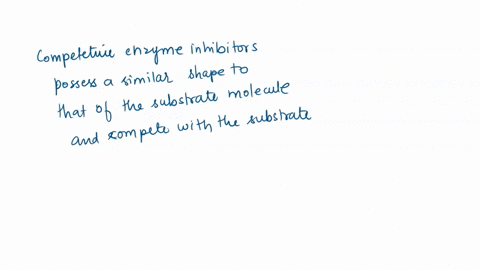 Competetive enzyme inhibitors
possess a similar shape to
that of the substrate molecule
and compete with the substrate